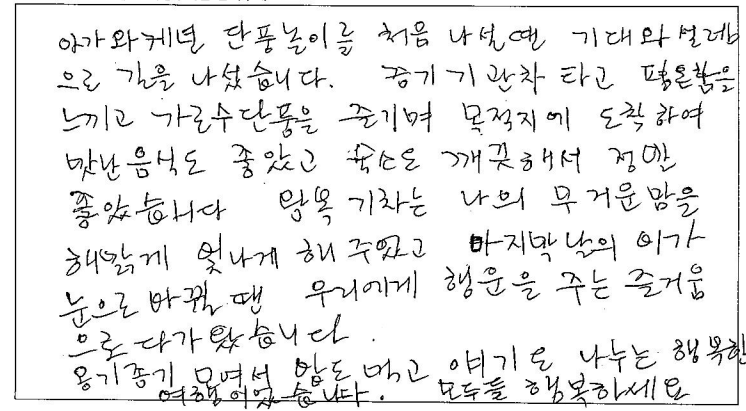 아가와케년 단풍놀이를 처음 나설땐 기대와 설레임
으로 길을 나섰습니다. 증기기관차 타고 평온함을
느끼고 가로수단풍을 즐기며 목적지에 도착하여
맛난음식도 좋았고 숙소도 깨끗해서 정말
좋았습니다 왕복 기차는 나의 무거운맘을
해맑게 빛나게 해주었고 마지막날의 비가
눈으로 바뀔땐 우리에게 행운을 주는 즐거움
으로 다가왔습니다.
옹기종기 모여서 밥도 먹고 얘기도 나누는 행복한
여행이었습니다. 모두들 행복하세요